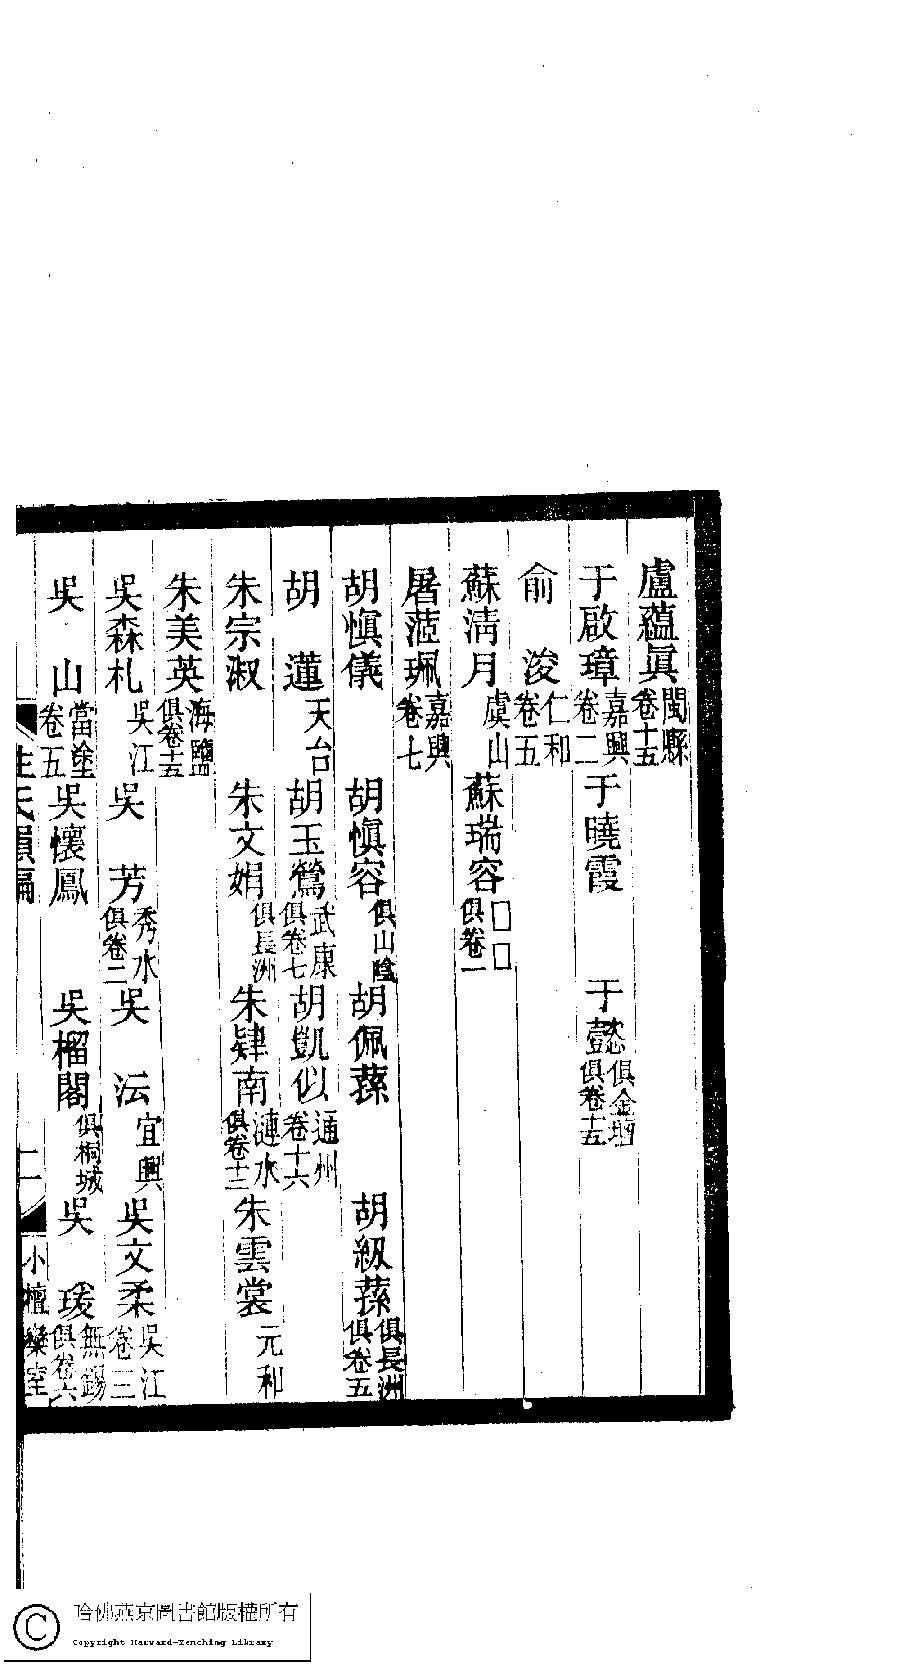 盧蘊眞閩縣卷十五
于啟璋嘉興卷二 于曉霞 于懿俱金壇俱卷十五
俞浚仁和卷五
蘇淸月虞山 蘇瑞容□□俱卷一
屠茝珮嘉興卷七
胡愼儀 胡愼容俱山陰 胡佩蓀 胡緅蓀俱長洲俱卷五
胡蓮天台 胡玉鶯武康俱卷七 胡凱似通州卷十六
朱宗淑 朱文娟俱長洲 朱肄南漣水俱卷十三 朱雲裳元和
朱美英海鹽俱卷十五
吳森札吳江 吳芳秀水俱卷二 吳沄宜興 吳文柔吳江卷三
吳山當塗卷五 吳懷鳳 吳榴閣俱桐城 吳瑗無錫俱卷六
姓氏韻編 二 小檀欒室
哈佛燕京圖書館版權所有
Copyright Harvard-Yenching Library